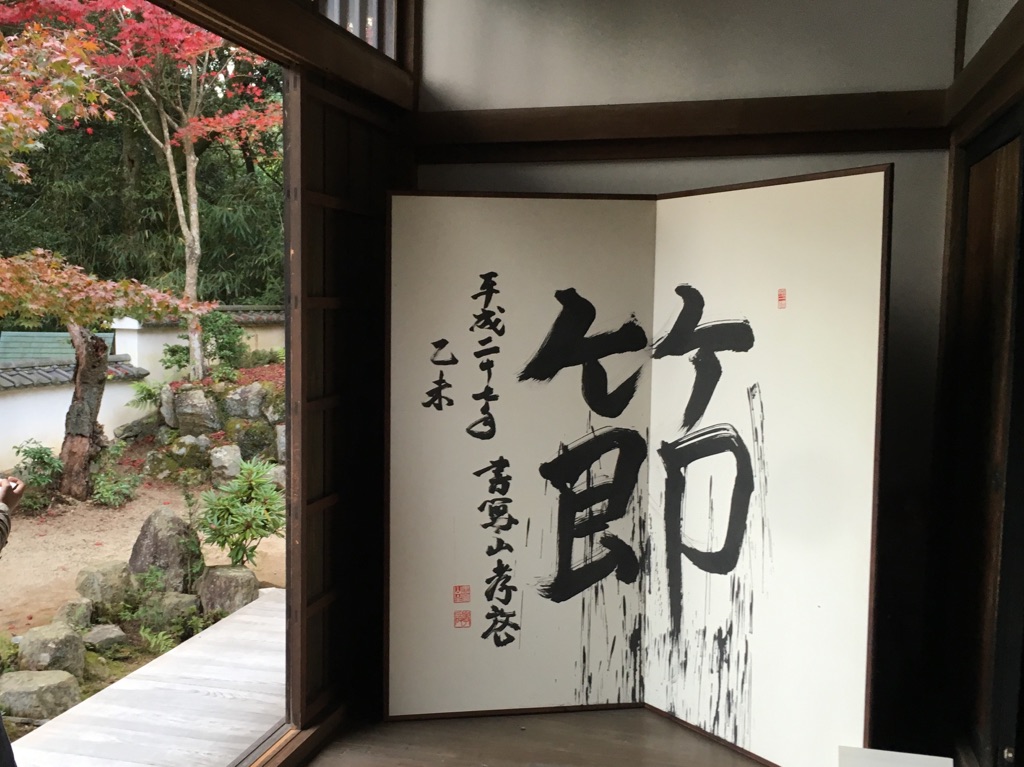 節
平成二十七年 書寫山孝啓
乙未